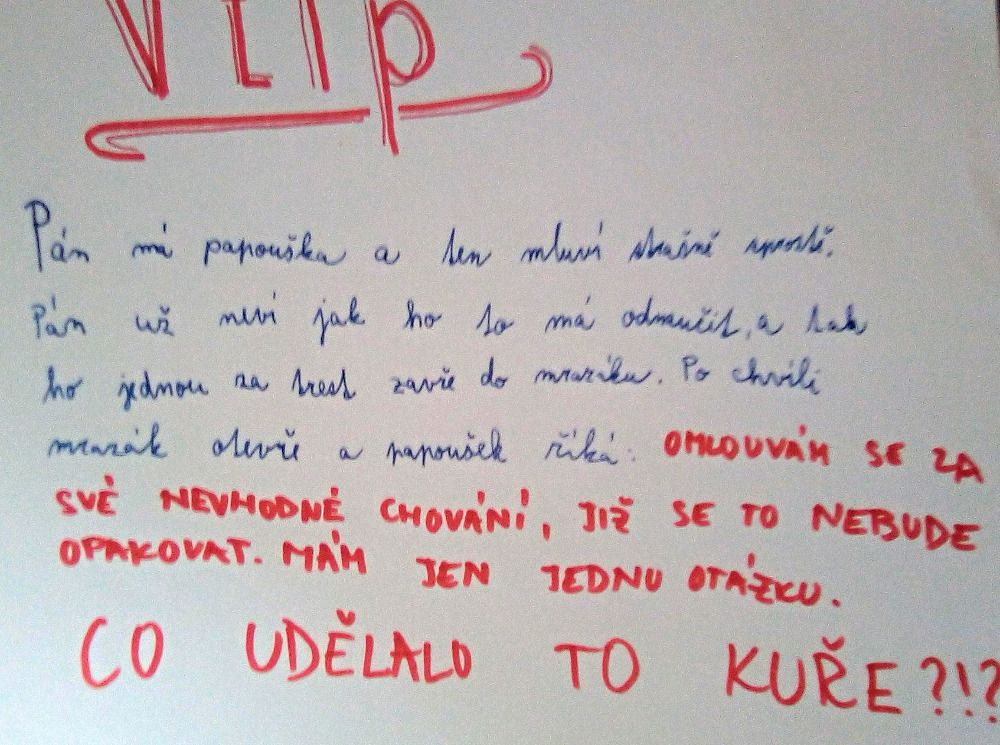 Vtip
Pán má papouška a ten mluví strašně sprostě.
Pán už neví jak ho to má odnaučit, a tak
ho jednou za trest zavře do mrazáku. Po chvíli
mrazák otevře a papoušek říká: OMLOUVÁM SE ZA
SVÉ NEVHODNÉ CHOVÁNÍ, JIŽ SE TO NEBUDE
OPAKOVAT. MÁM JEN JEDNU OTÁZKU.
CO UDĚLALO TO KUŘE?!?